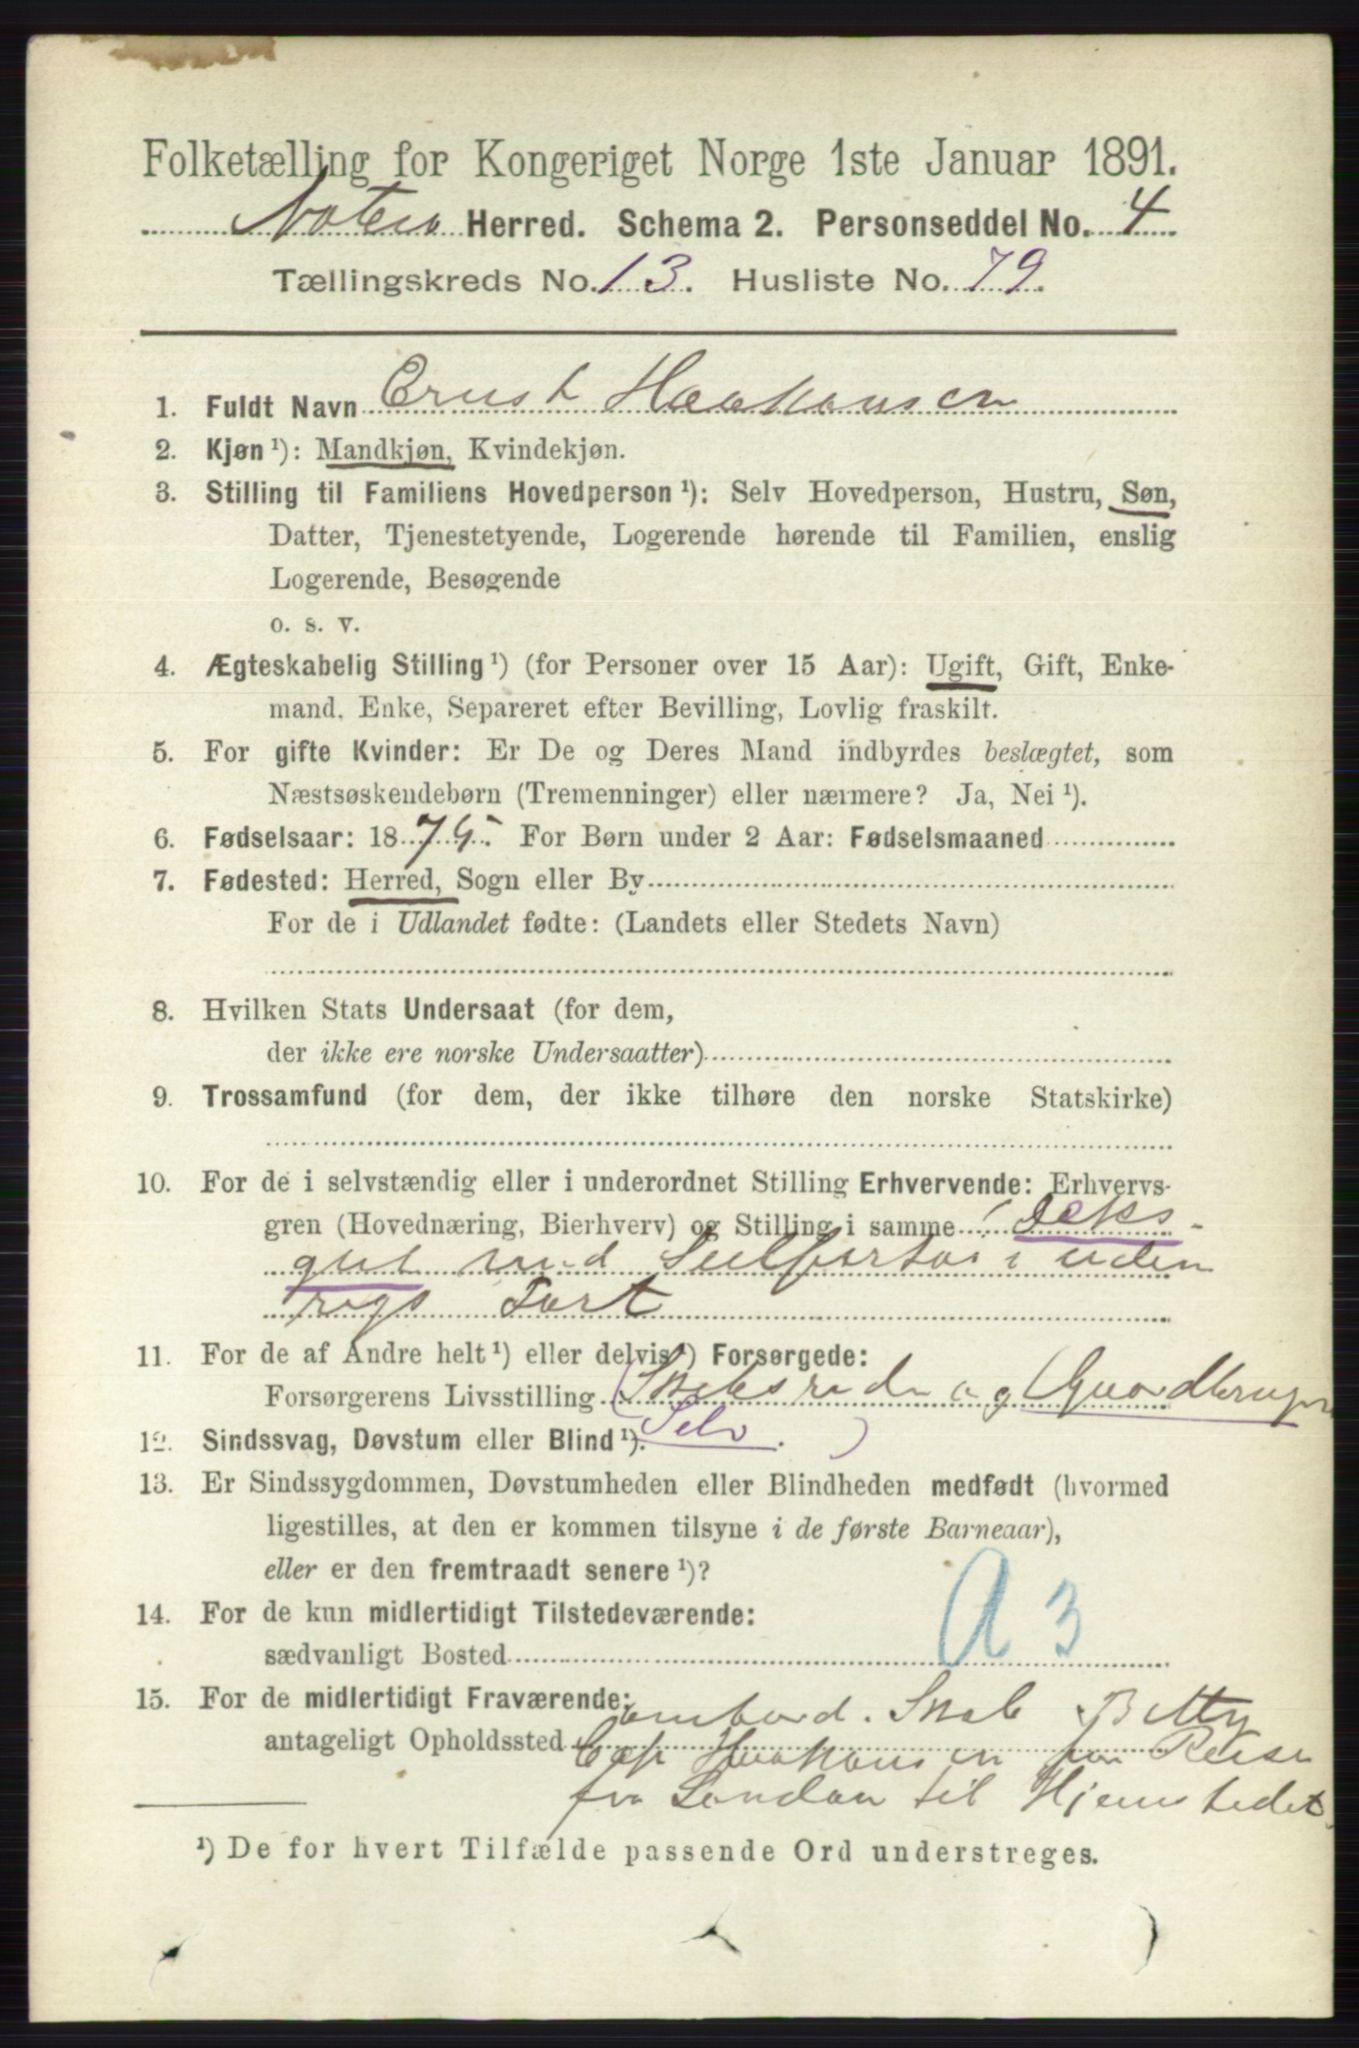 Folketælling for Kongeriget Norge 1ste Januar 1891.
Nøterø Herred. Schema 2. Personseddel No. 4
Tællingskreds No. 13. Husliste No. 79.
1. Fuldt Navn Ernst Haakonsen
2. Kjøn ¹): Mandkjøn, Kvindekjøn.
3. Stilling til Familiens Hovedperson ¹): Selv Hovedperson, Hustru, Søn,
Datter, Tjenestetyende, Logerende hørende til Familien, enslig
Logerende, Besøgende
o. s. v.
4. Ægteskabelig Stilling ¹) (for Personer over 15 Aar): Ugift, Gift, Enke-
mand, Enke, Separeret efter Bevilling, Lovlig fraskilt.
5. For gifte Kvinder: Er De og Deres Mand indbyrdes beslægtet, som
Næstsøskendebørn (Tremenninger) eller nærmere? Ja, Nei ¹).
6. Fødselsaar: 1875. For Børn under 2 Aar: Fødselsmaaned
7. Fødested: Herred, Sogn eller By
For de i Udlandet fødte: (Landets eller Stedets Navn)
8. Hvilken Stats Undersaat (for dem,
der ikke ere norske Undersaatter)
9. Trossamfund (for dem, der ikke tilhøre den norske Statskirke)
10. For de i selvstændig eller i underordnet Stilling Erhvervende: Erhvervs-
gren (Hovednæring, Bierhverv) og Stilling i samme Deks-
gut med Seilfartøi i uden
rigs Fart
11. For de af Andre helt ¹) eller delvis ¹) Forsørgede:
Forsørgerens Livsstilling (Skibsreder og Gaardbruger
Selv. )
12. Sindssvag, Døvstum eller Blind ¹).
13. Er Sindssygdommen, Døvstumheden eller Blindheden medfødt (hvormed
ligestilles, at den er kommen tilsyne i de første Barneaar),
eller er den fremtraadt senere ¹)?
14. For de kun midlertidigt Tilstedeværende:
sædvanligt Bosted
A 3
15. For de midlertidigt Fraværende: ombord. Skib Betty
antageligt Opholdssted Cap Haakonsen paa Reise
fra London til Hjemstedet
¹) De for hvert Tilfælde passende Ord understreges.